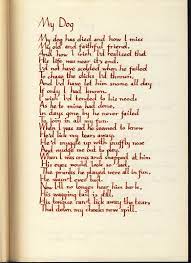 My Dog
My dog has died and how I miss
My old and faithful friend,
And how I wish I'd realized that
His life was near it's end.
I'd not have scolded when he failed
To chase the ducks I'd thrown,
And I'd have let him snore all day
If only I had known.
I wish I'd tended to his needs
As he to mine had done,
In days gone by he never failed
To join in all my fun.
When I was sad he seemed to know
He'd lick my tears away.
He'd snuggle up with snuffly nose
And nudge me out to play.
When I was cross and snapped at him
His eyes would look so sad,
The pranks he played were all in fun,
He wasn't ever bad.
Now I'll no longer hear him bark,
His wagging tail is still,
His tongue can't lick away the tears
That down my cheeks now spill.